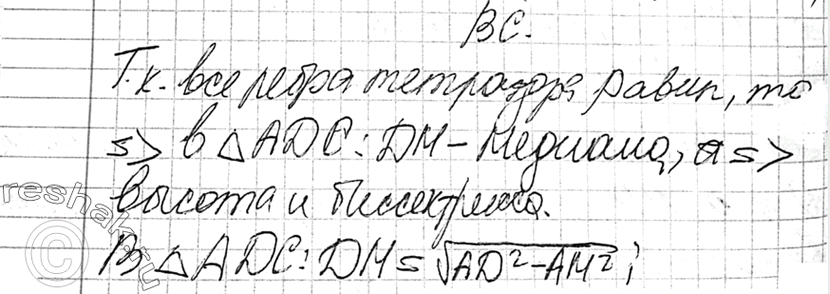 BC.
Т.к. все ребра тетраэдра равны, то
=> в △ADC: DM – медиана, а =>
высота и биссектриса.
В △ADC: DM = √AD² – AM²;
reshak.ru